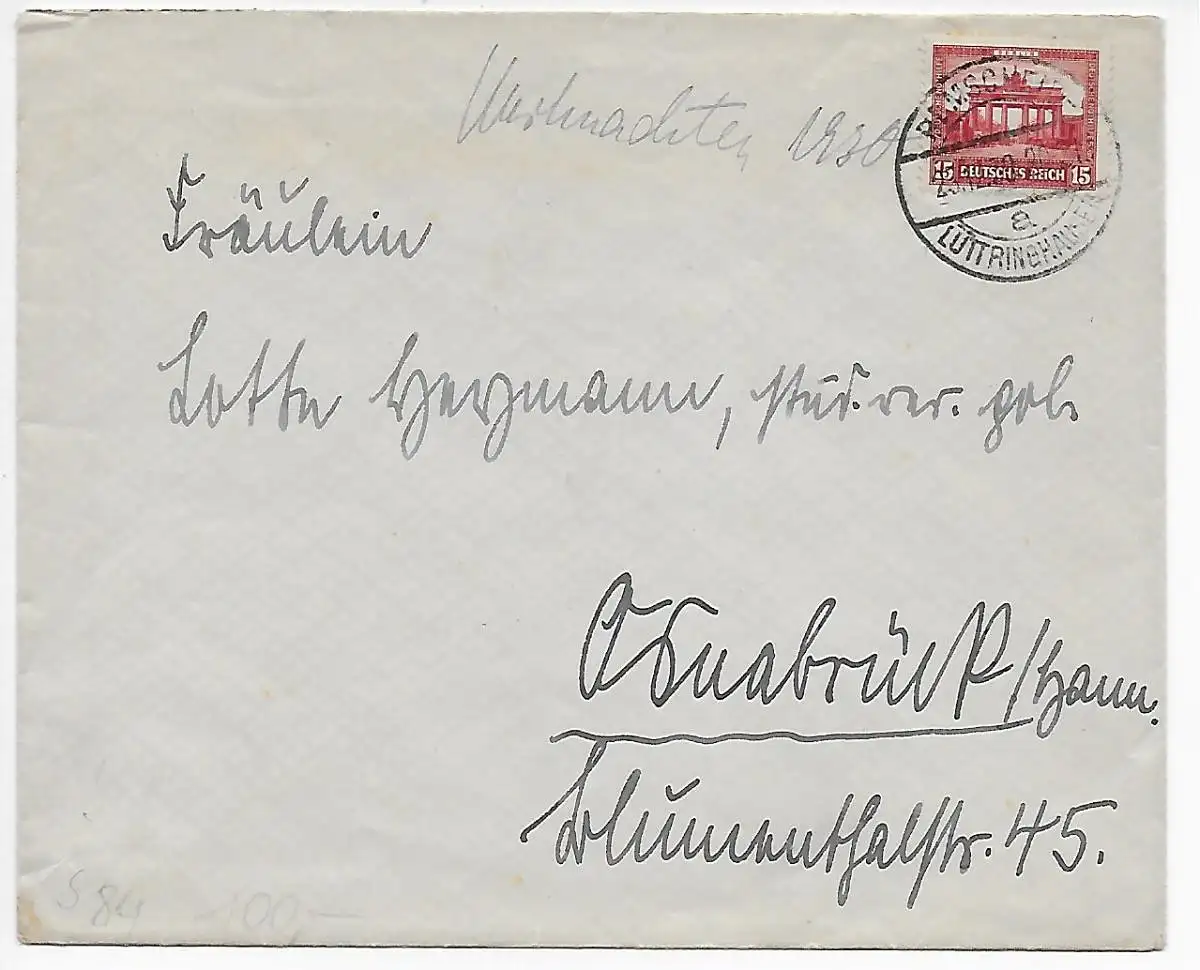 Weihnachten 1930
15 DEUTSCHES REICH 15
REMSCHEID
a
LÜTTRINGHAUSEN
Fräulein
Lotte Heymann, stud. rer. pol.
Osnabrück/Hann.
Blumenthalstr. 45.
S 84 -100,-